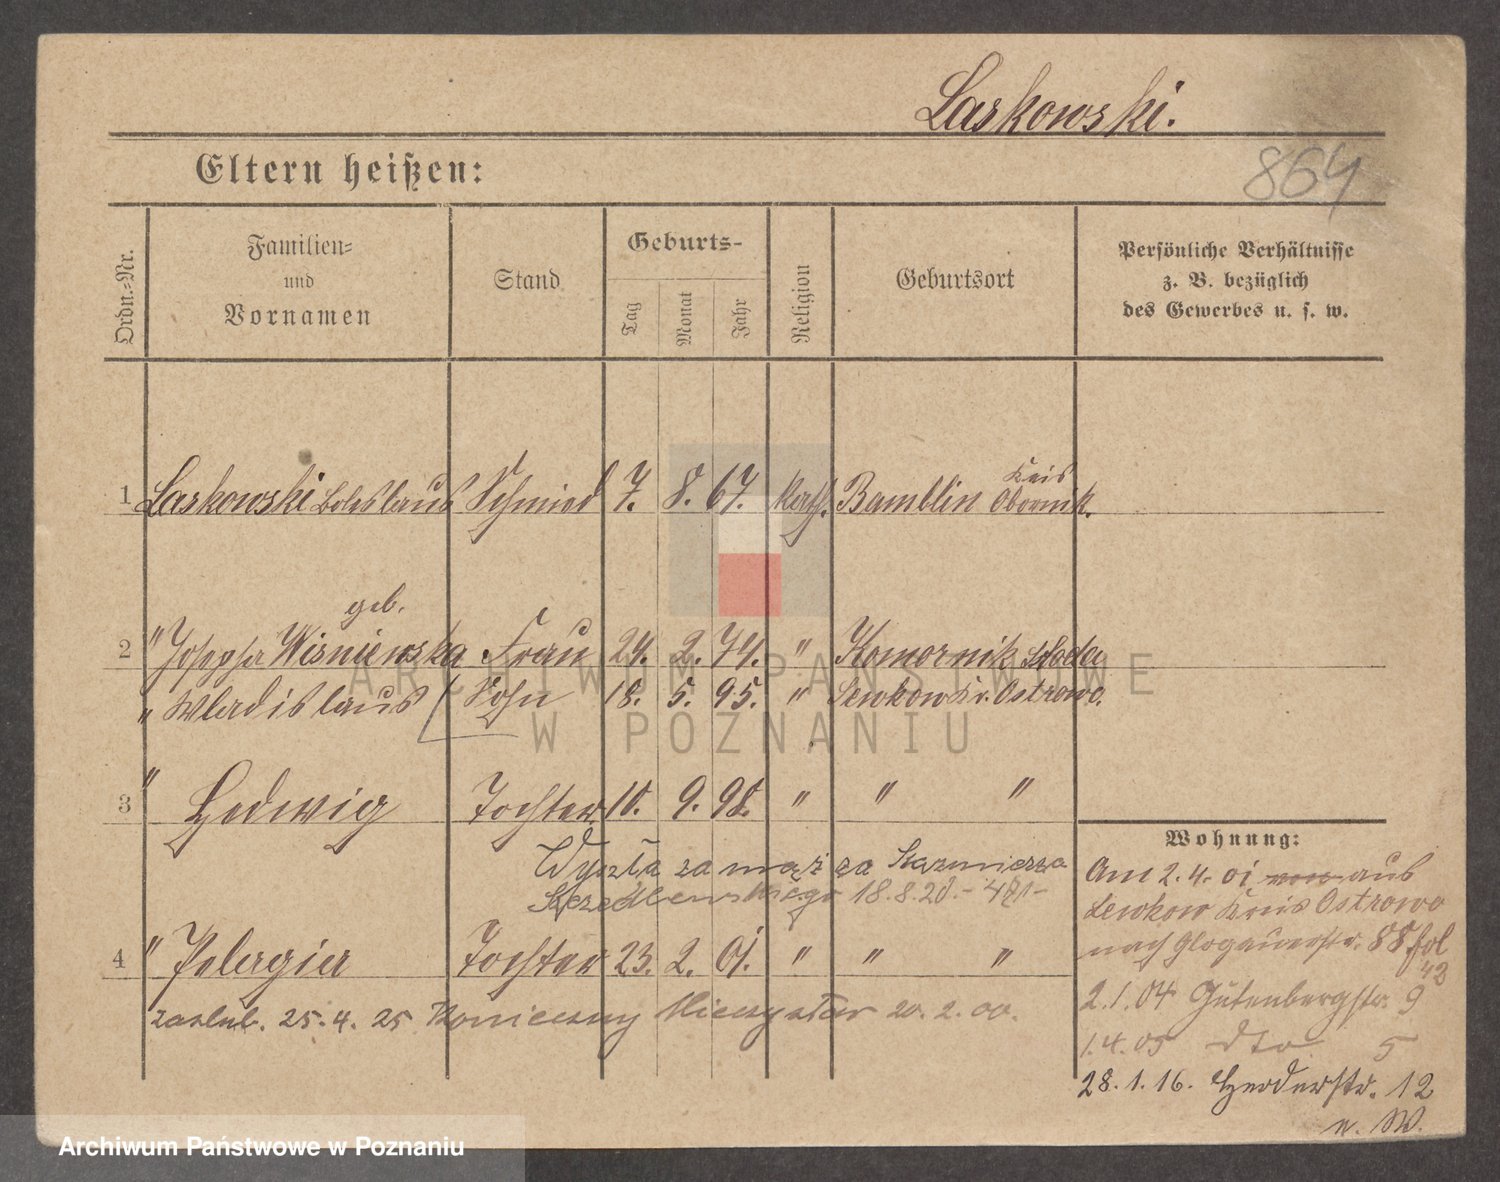 Laskowski.
864
Eltern heißen:
Ordn.-Nr.
Familien-
und
Vornamen
Stand
Geburts-
Tag
Monat
Jahr
Religion
Geburtsort
Persönliche Verhältnisse
z. B. bezüglich
des Gewerbes u. s. w.
1 Laskowski Boleslaus Schmied 7. 8. 67. kath. Bamblin Kreis Obornik.
geb.
2 " Josepha Wisniewska Frau 24. 2. 74. " Komornik Schroda
" Wladislaus Sohn 18. 5. 95. " Lewkow Kr. Ostrowo.
3 " Hedwig Tochter 10. 9. 98. " " "
Wyszła za mąż za Kazmierza
18.8.20.
4 " Pelagia Tochter 23. 2. 01. " " "
zaślub. 25.4.25 Konieczny Mieczysław 20.2.00.
Wohnung:
Am 2.4.01 von aus
Lewkow Kreis Ostrowo
nach Glogauerstr. 88 fol
42
2.1.04 Gutenbergstr. 9
1.4.05 dto 5
28.1.16. Herderstr. 12
n. W.
ARCHIWUM PAŃSTWOWE
W POZNANIU
Archiwum Państwowe w Poznaniu